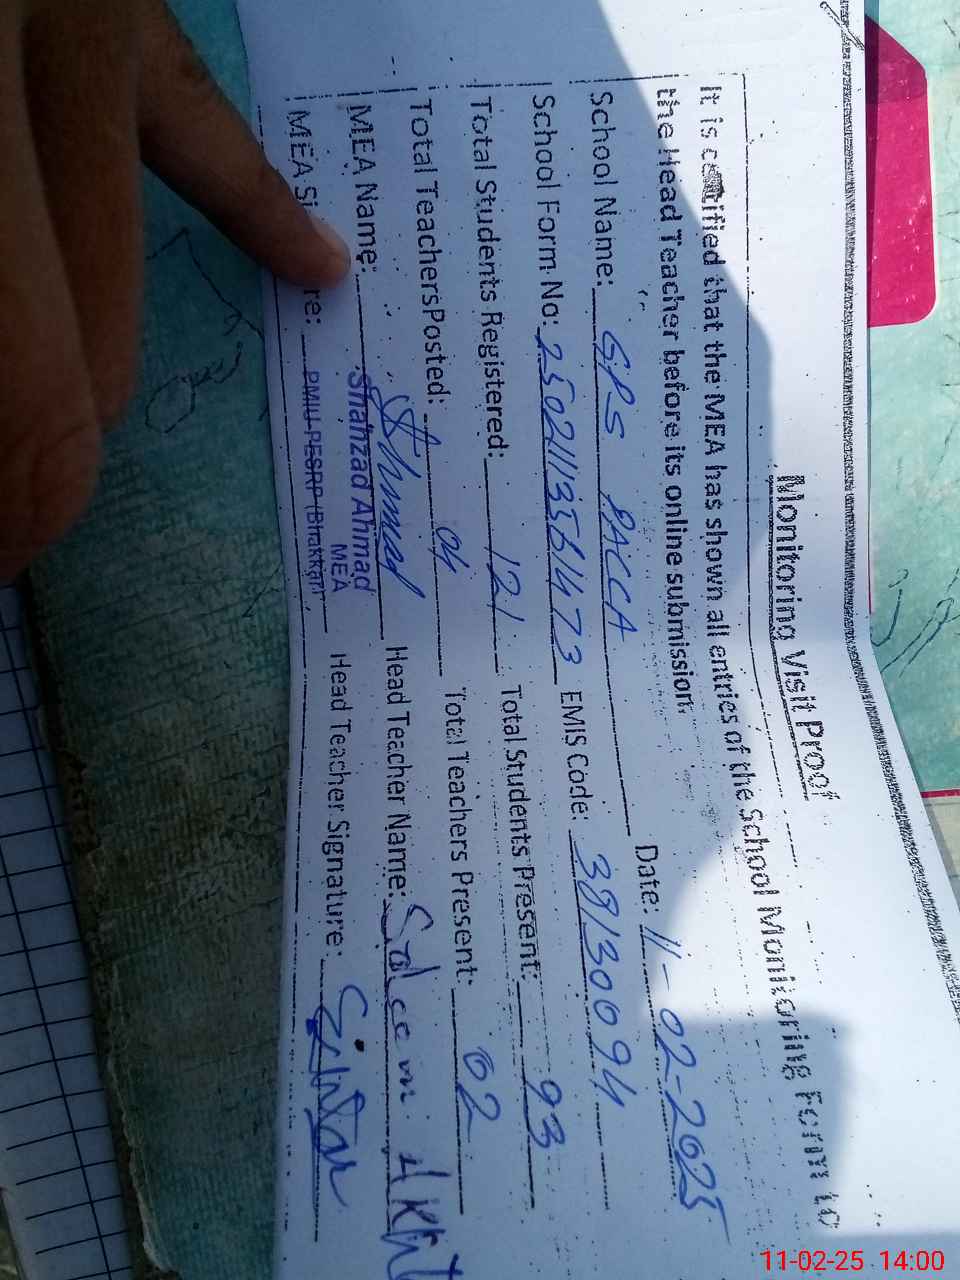 Monitoring Visit Proof
It is certified that the MEA has shown all entries of the School Monitoring Form to
the Head Teacher before its online submission.
Date: 11-02-2025
School Name: GPS PACCA
School Form No: 25021135B1473 EMIS Code: 38130094
Total Students Registered: 121 Total Students Present: 93
Total Teachers Posted: 04 Total Teachers Present: 02
MEA Name: Shahzad Ahmad Head Teacher Name: Saleem Akht
MEA
MEA Si re: PMIU-PESRP (Bhakkar) Head Teacher Signature:
11-02-25 14:00